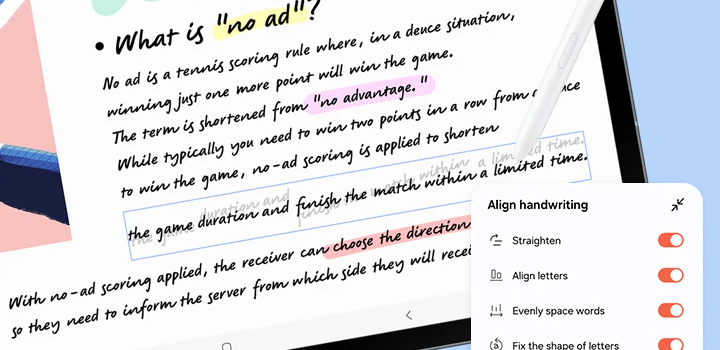 • What is "no ad"?
No ad is a tennis scoring rule where, in a deuce situation,
winning just one more point will win the game.
The term is shortened from "no advantage."
While typically you need to win two points in a row from
to win the game, no-ad scoring is applied to shorten
the game duration and finish the match within a limited time.
the game duration and finish the match within a limited time.
With no-ad scoring applied, the receiver can choose the direction
so they need to inform the server from which side they will
Align handwriting
Straighten
Align letters
Evenly space words
Fix the shape of letters